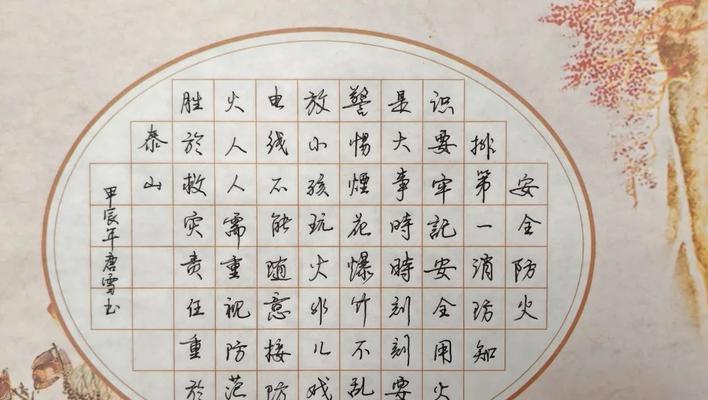 安全防火
排第一消防知
识要牢記安全用火
是大事時時刻刻要
警惕煙花爆竹不乱
放小孩玩火非儿戏
电线不能随意接防
火人人需重视防范
胜於救灾责任重於
泰山
甲辰年唐雪书